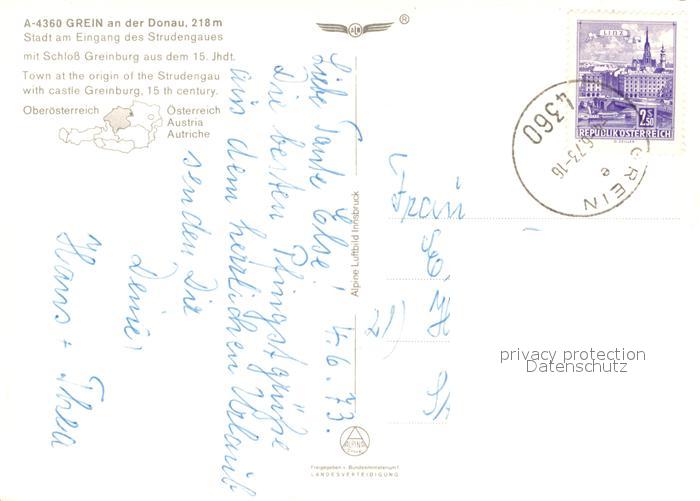 A-4360 GREIN an der Donau, 218 m
Stadt am Eingang des Strudengaues
mit Schloß Greinburg aus dem 15. Jhdt.
Town at the origin of the Strudengau
with castle Greinburg, 15 th century.
Oberösterreich
Österreich
Austria
Autriche
®
Liebe Tante Else! 4.6.73.
die besten Pfingstgrüße
aus dem herrlichen Urlaub
senden Dir
Deine
Hans + Thea
Alpine Luftbild Innsbruck
ALPINE
Freigegeben v. Bundesministerium f.
LANDESVERTEIDIGUNG
LINZ
2.50
REPUBLIK ÖSTERREICH
4360 GREIN
6.73-16
e
Frau
E.
21) H
privacy protection
Datenschutz